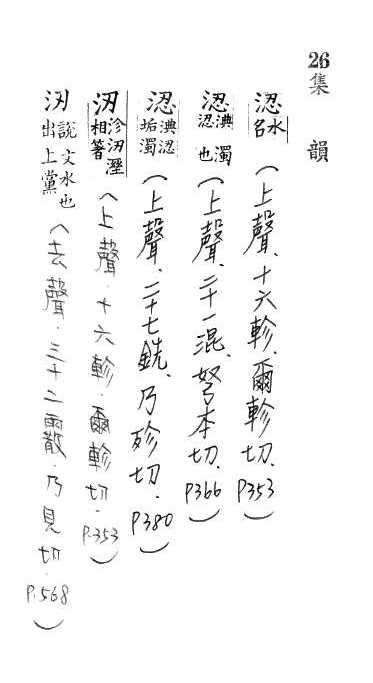 26集 韻
涊水名(上聲、十六軫、爾軫切、P353)
涊淟涊濁也(上聲、二十一混、弩本切、P366)
涊淟涊垢濁(上聲、二十七銑、乃殄切．P380)
㲽沴㲽溼相箸(上聲．十六軫．爾軫切．P.353)
㲽說文水也出上黨(去聲．三十二霰．乃見切．P.568)